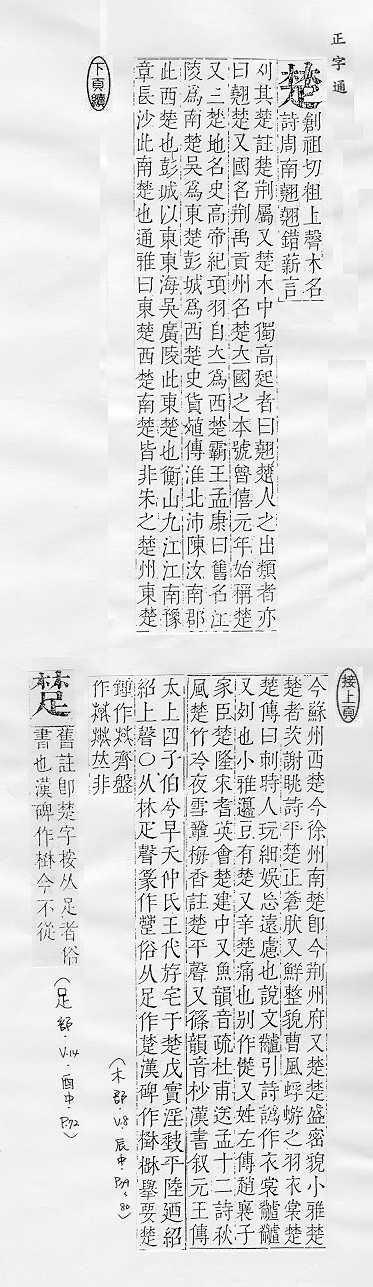 正字通
楚
創祖切粗上聲木名
詩周南翹翹錯薪言
刈其楚註楚荆屬又楚木中獨高起者曰翹楚人之出類者亦
曰翹楚又國名荆禹貢州名楚大國之本號魯僖元年始稱楚
又三楚地名史高帝紀項羽自立爲西楚霸王孟康曰舊名江
陵爲南楚吳爲東楚彭城爲西楚史貨殖傳淮北沛陳汝南郡
此西楚也彭城以東東海吳廣陵此東楚也衡山九江江南豫
章長沙此南楚也通雅曰東楚西楚南楚皆非朱之楚州東楚
下頁續
接上頁
今蘇州西楚今徐州南楚卽今荆州府又楚楚盛密貌小雅楚
楚者茨謝眺詩平楚正蒼肰又鮮整貌曹風蜉蝣之羽衣裳楚
楚傳曰刺時人玩細娛忘遠慮也說文引詩譌作衣裳
又刻也小雅籩豆有楚又辛楚痛也別作憷又姓左傳趙襄子
家臣楚隆宋耆英會楚建中又魚韻音疏杜甫送孟十二詩秋
風楚竹冷夜雪鞏梅香註楚平聲又篠韻音杪漢書叙元王傳
太上四子伯兮早夭仲氏王代斿宅于楚戊實淫缺平陸廼紹
紹上聲○从林疋聲篆作俗从足作漢碑作舉要楚
鍾作齊盤
作非
舊註卽楚字按从足者俗
書也漢碑作今不從
(木部·V.8 辰中·P.79~80)
(足部·V.14·酉中·P.72)